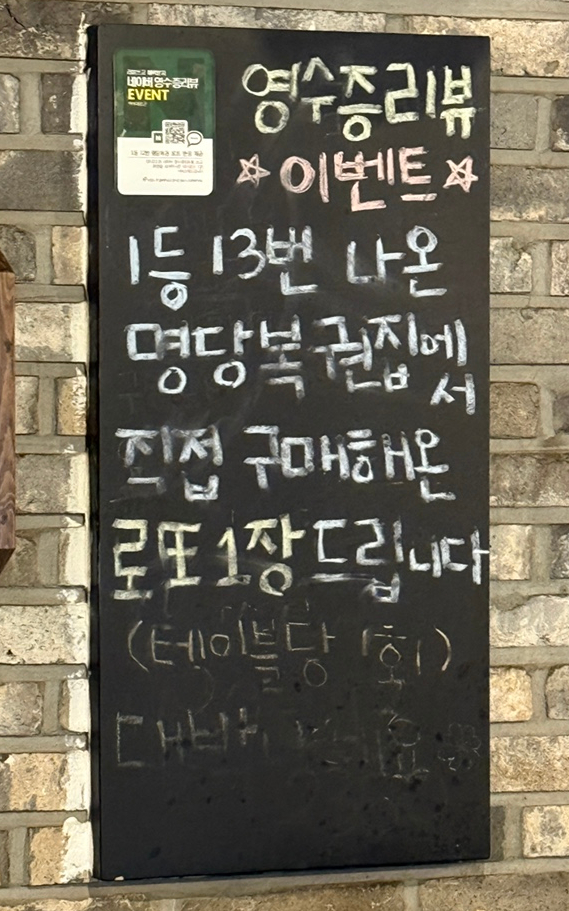 네이버 영수증리뷰
EVENT
영수증리뷰
☆이벤트☆
1등 13번 나온
명당복권집에서
직접 구매해온
로또 1장 드립니다
(테이블당 1회)
대박